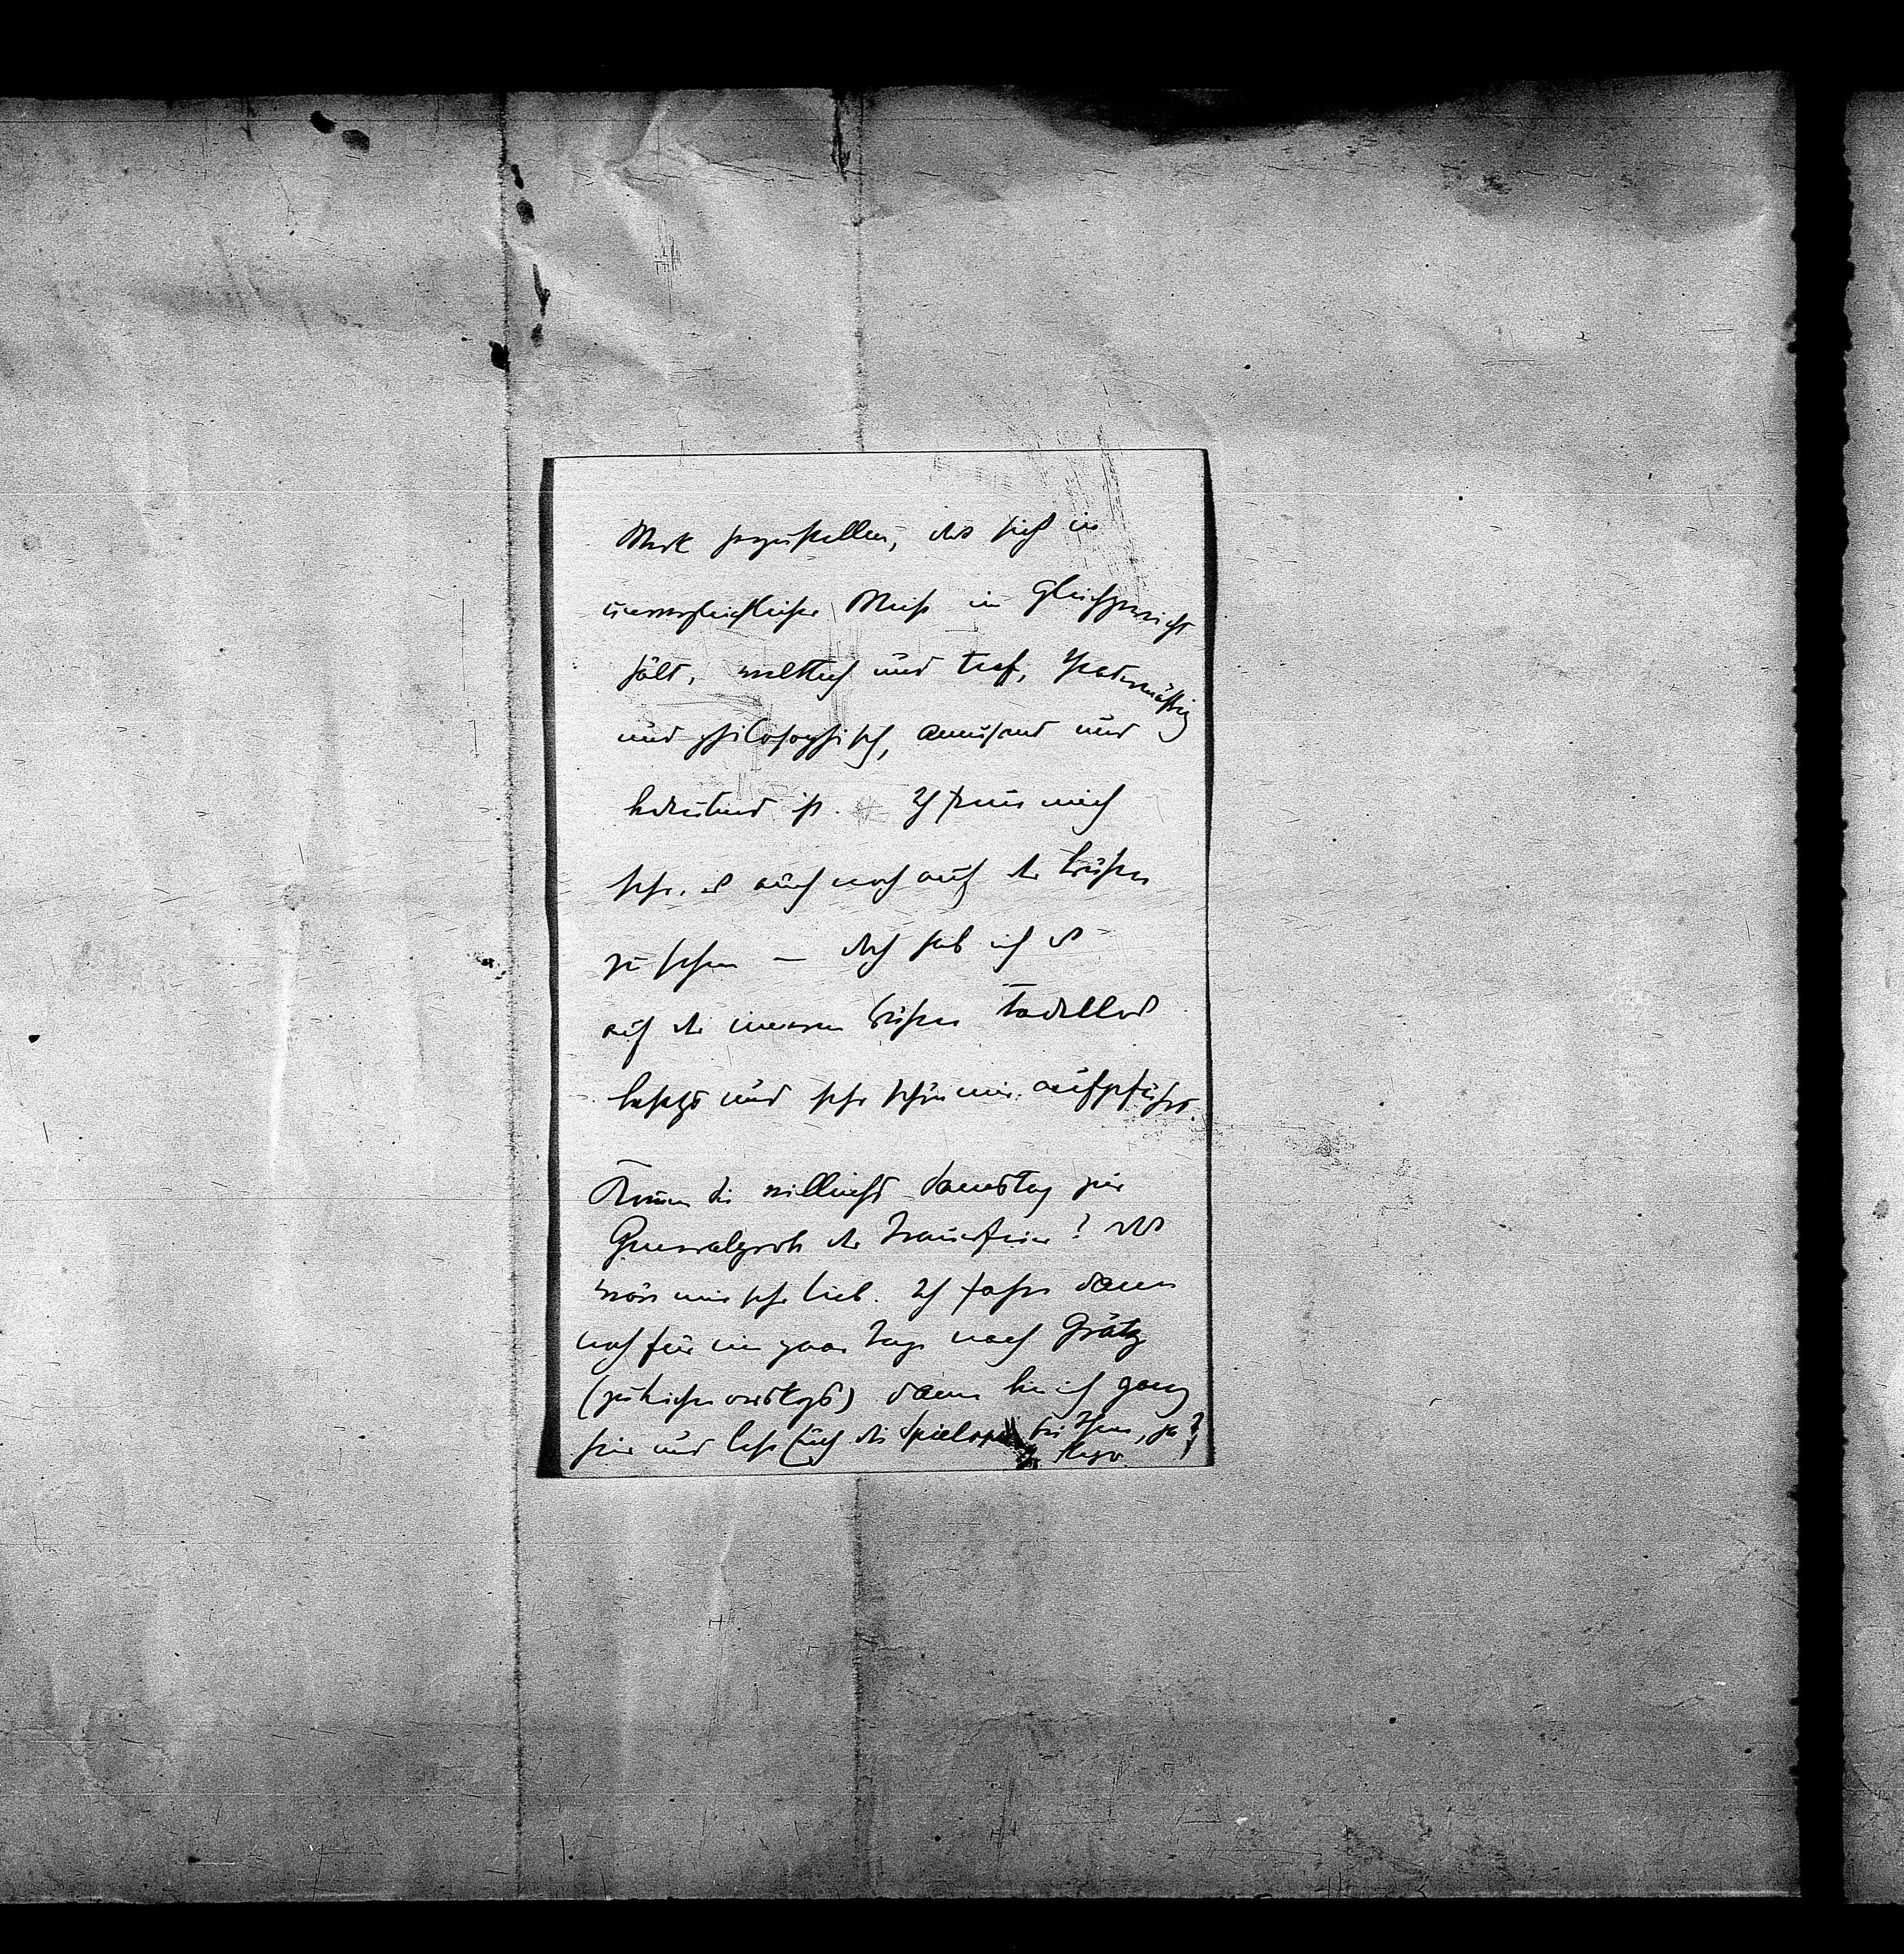 Werk herzustellen, das sich in
unvergleichlicher Weise im Gleichgewicht
hält, weltlich und tief, theatermässig
und philosophisch, amüsant und
bedeutend ist. Ich freue mich
sehr, es auch noch auf der Bühne
zu sehen — doch hab ich es
auf der inneren Bühne tadellos
besetzt und sehr schön mir aufgeführt.
Kommen Sie vielleicht Samstag zur
Generalprobe der Trauerfeier? Das
wäre mir sehr lieb. Ich fahre dann
noch für ein paar Tage nach Grätz
dann bin ich ganz
hier und lese auch die Spieloper bei Ihnen, ja?
Hugo